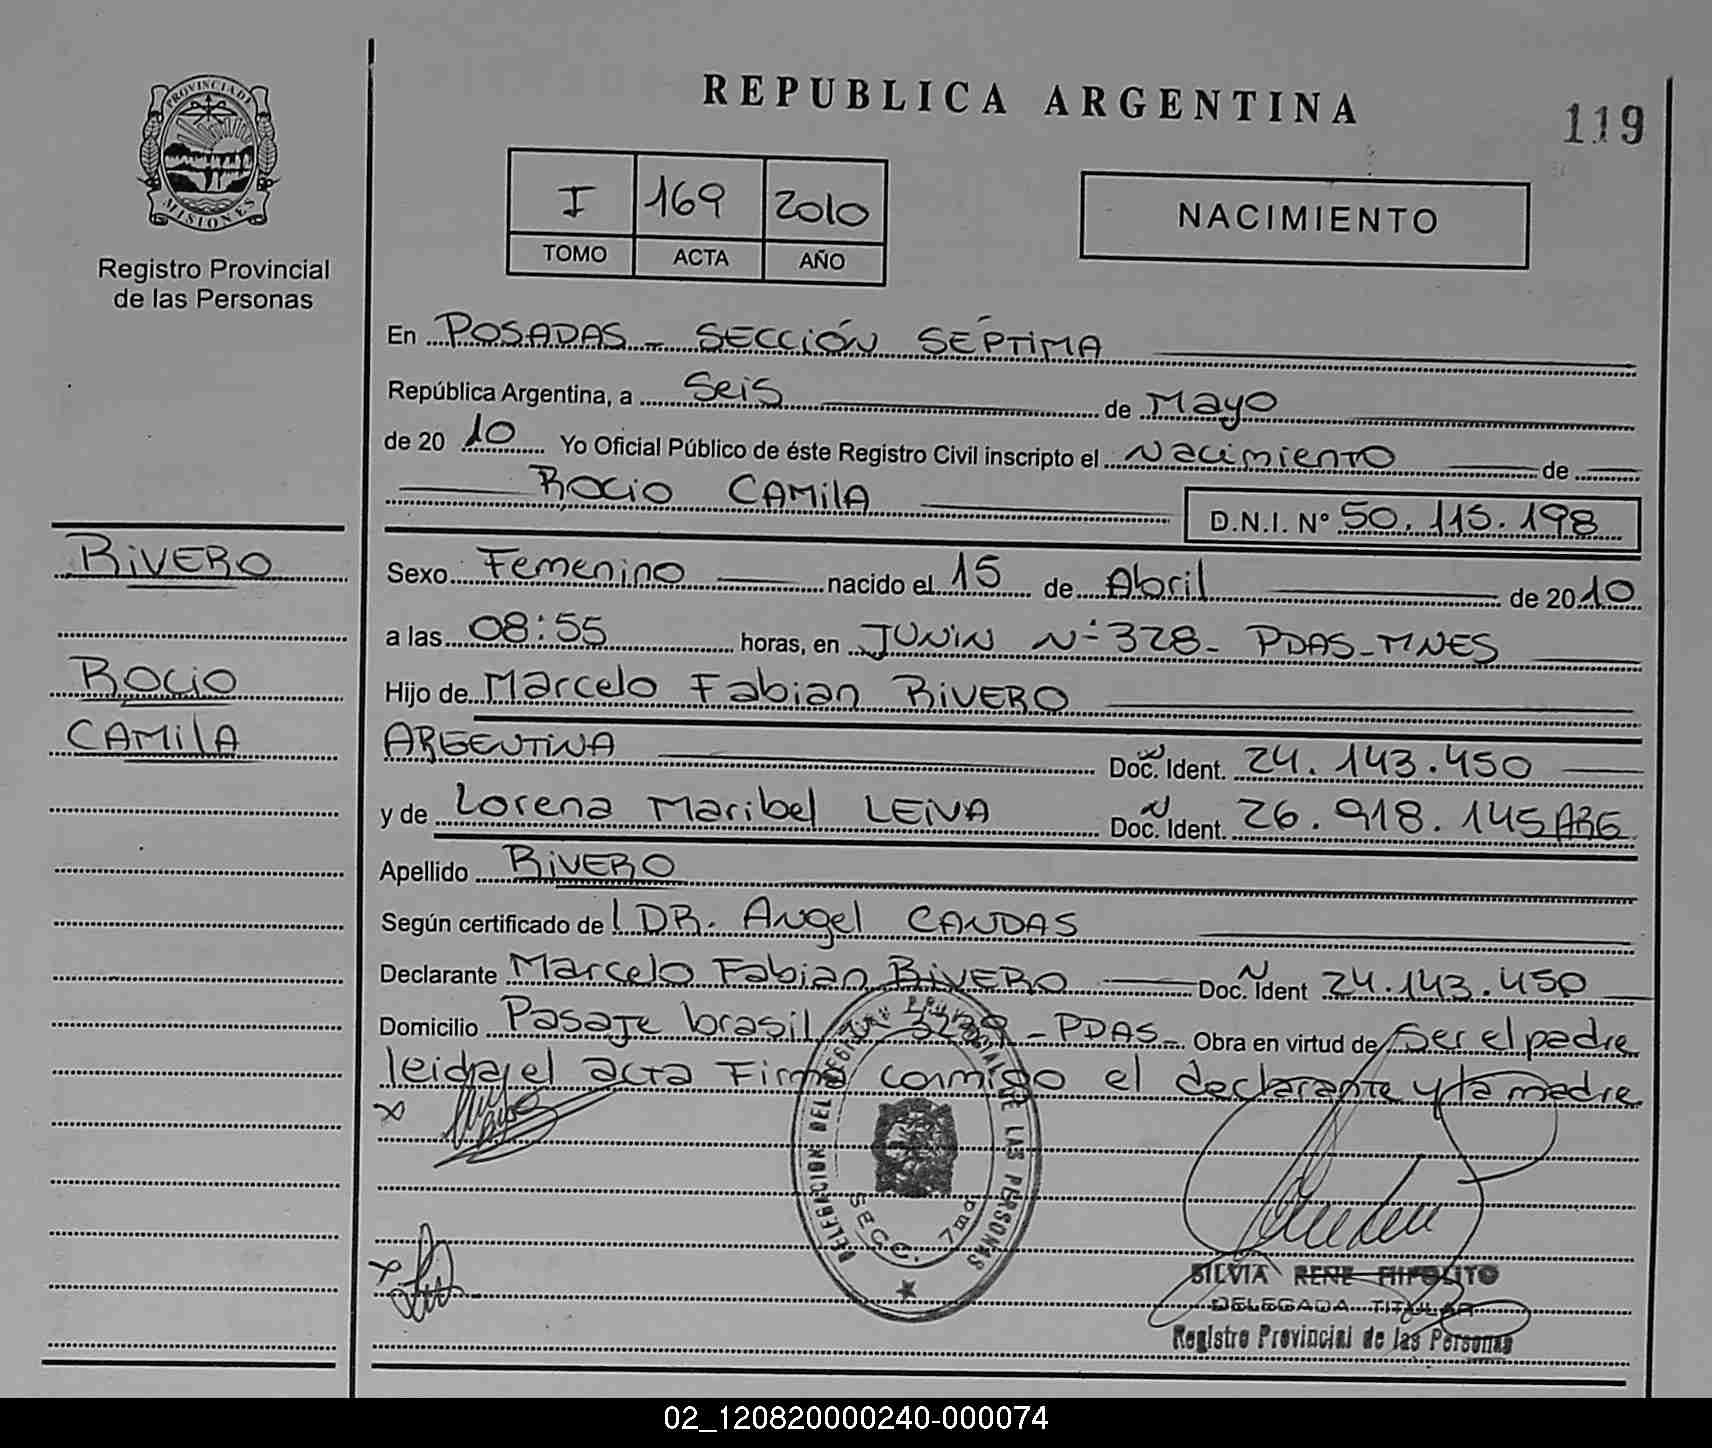 PROVINCIA DE
MISIONES
Registro Provincial
de las Personas
REPUBLICA ARGENTINA
119
I 169 2010
TOMO ACTA AÑO
NACIMIENTO
En POSADAS - SECCIÓN SÉPTIMA
República Argentina, a Seis de Mayo
de 20 10 Yo Oficial Público de éste Registro Civil inscripto el Nacimiento de
ROCIO CAMILA
D.N.I. Nº 50.115.198
RIVERO
ROCIO
CAMILA
Sexo Femenino nacido el 15 de Abril de 2010
a las 08:55 horas, en JUNIN Nº 328 - PDAS - MNES
Hijo de Marcelo Fabian RIVERO
ARGENTINA Doc. Ident. 24.143.450
y de Lorena Maribel LEIVA Doc. Ident. 26.918.145 ARG
Apellido RIVERO
Según certificado de DR. Angel CANDAS
Declarante Marcelo Fabian RIVERO Doc. Ident 24.143.450
Domicilio Pasaje brasil 3229 - PDAS - Obra en virtud de Ser el padre
leida el acta Firma conmigo el declarante y la madre
DELEGACION DEL REGISTRO PROVINCIAL DE LAS PERSONAS
SECC. 7ma
SILVIA RENE HIPOLITO
DELEGADA TITULAR
Registro Provincial de las Personas
02_120820000240-000074